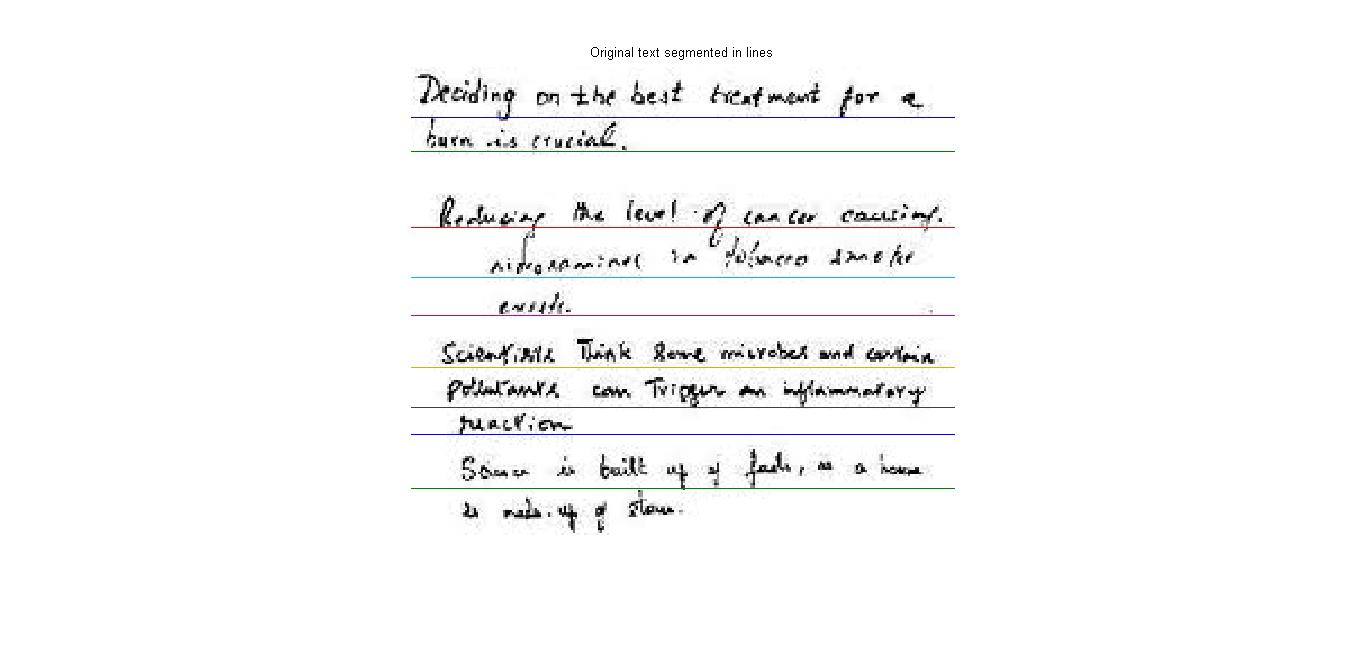 Original text segmented in lines
Deciding on the best treatment for a
burn is crucial.
Reducing the level of cancer causing.
nitrosamines in tobacco smoke
Scientists Think Some microbes and certain
pollutants can Trigger an inflammatory
reaction
Science is built up of facts, as a house
is made.up of stone.